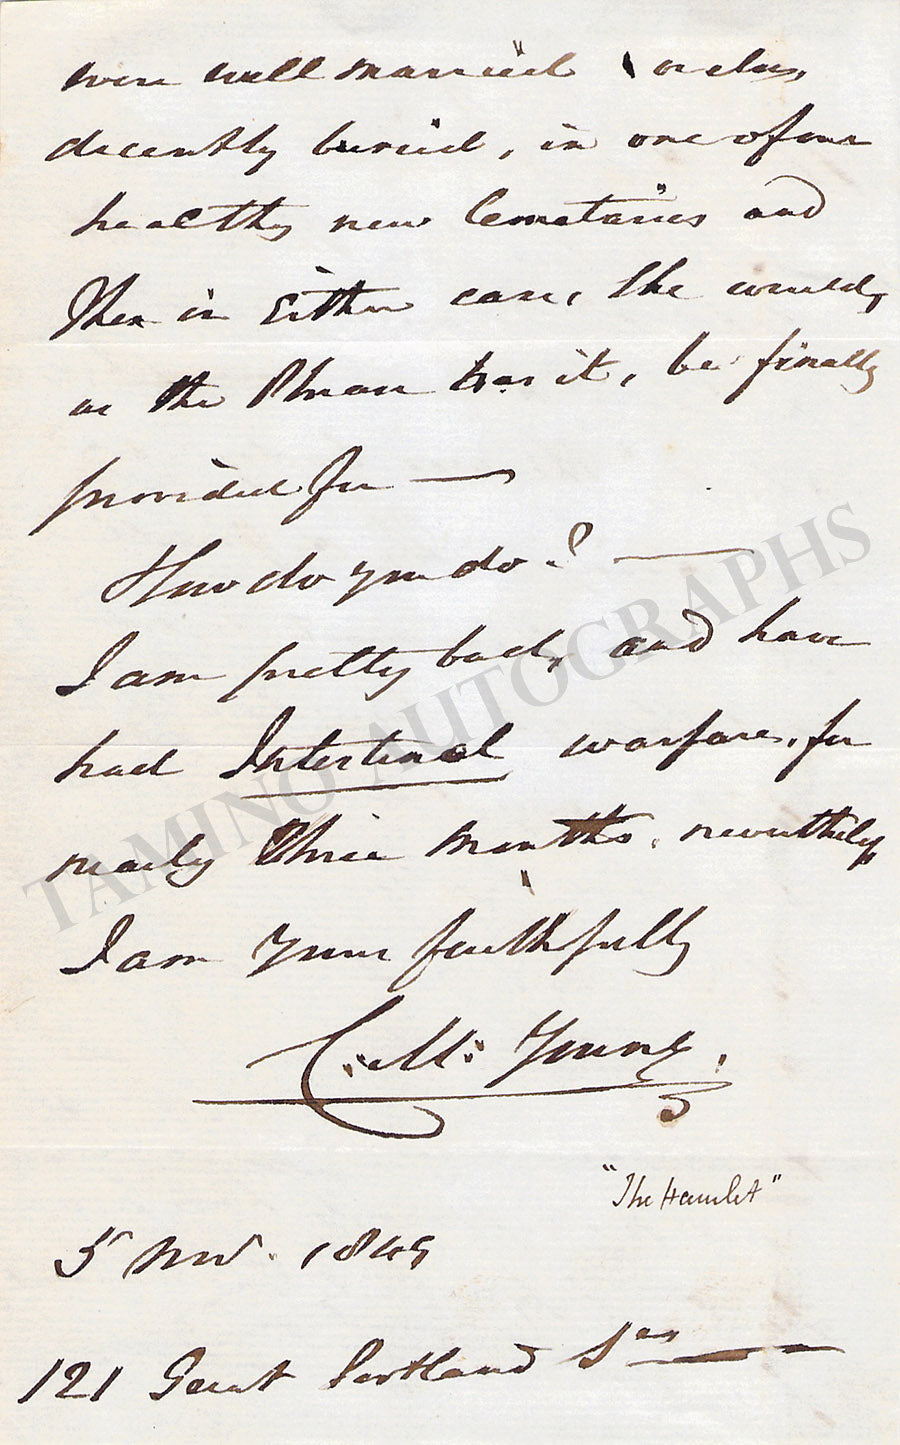 were well married or else,
decently buried, in one of our
healthy new Cemetaries and
Then in Either case, She would,
as the Phrase has it, be finally
provided for —
How do you do? —
I am pretty bad, and have
had Intestinal warfare, for
nearly three Months, nevertheless,
I am Yours faithfully
C: M: Young.
"The Hamlet"
5 Nov. 1845
121 Great Portland
TAMINO AUTOGRAPHS